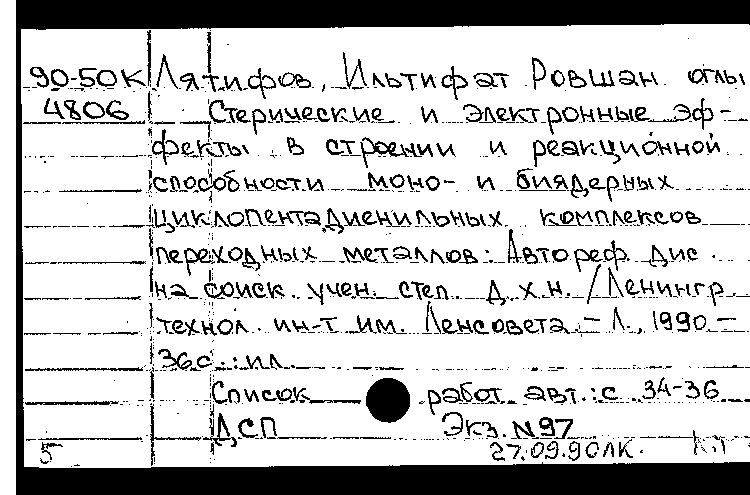 90-50К Лятифов, Ильтифат Ровшан оглы
4806 Стерические и электронные эф-
фекты в строении и реакционной
способности моно- и биядерных
циклопентадиенильных комплексов
переходных металлов: Автореф. дис.
на соиск. учен. степ. д.х.н. /Ленингр.
технол. ин-т им. Ленсовета. - Л., 1990 -
36с.: ил.
Список работ авт.: с 34-36
ДСП Экз. №97
5 27.09.90ЛК.